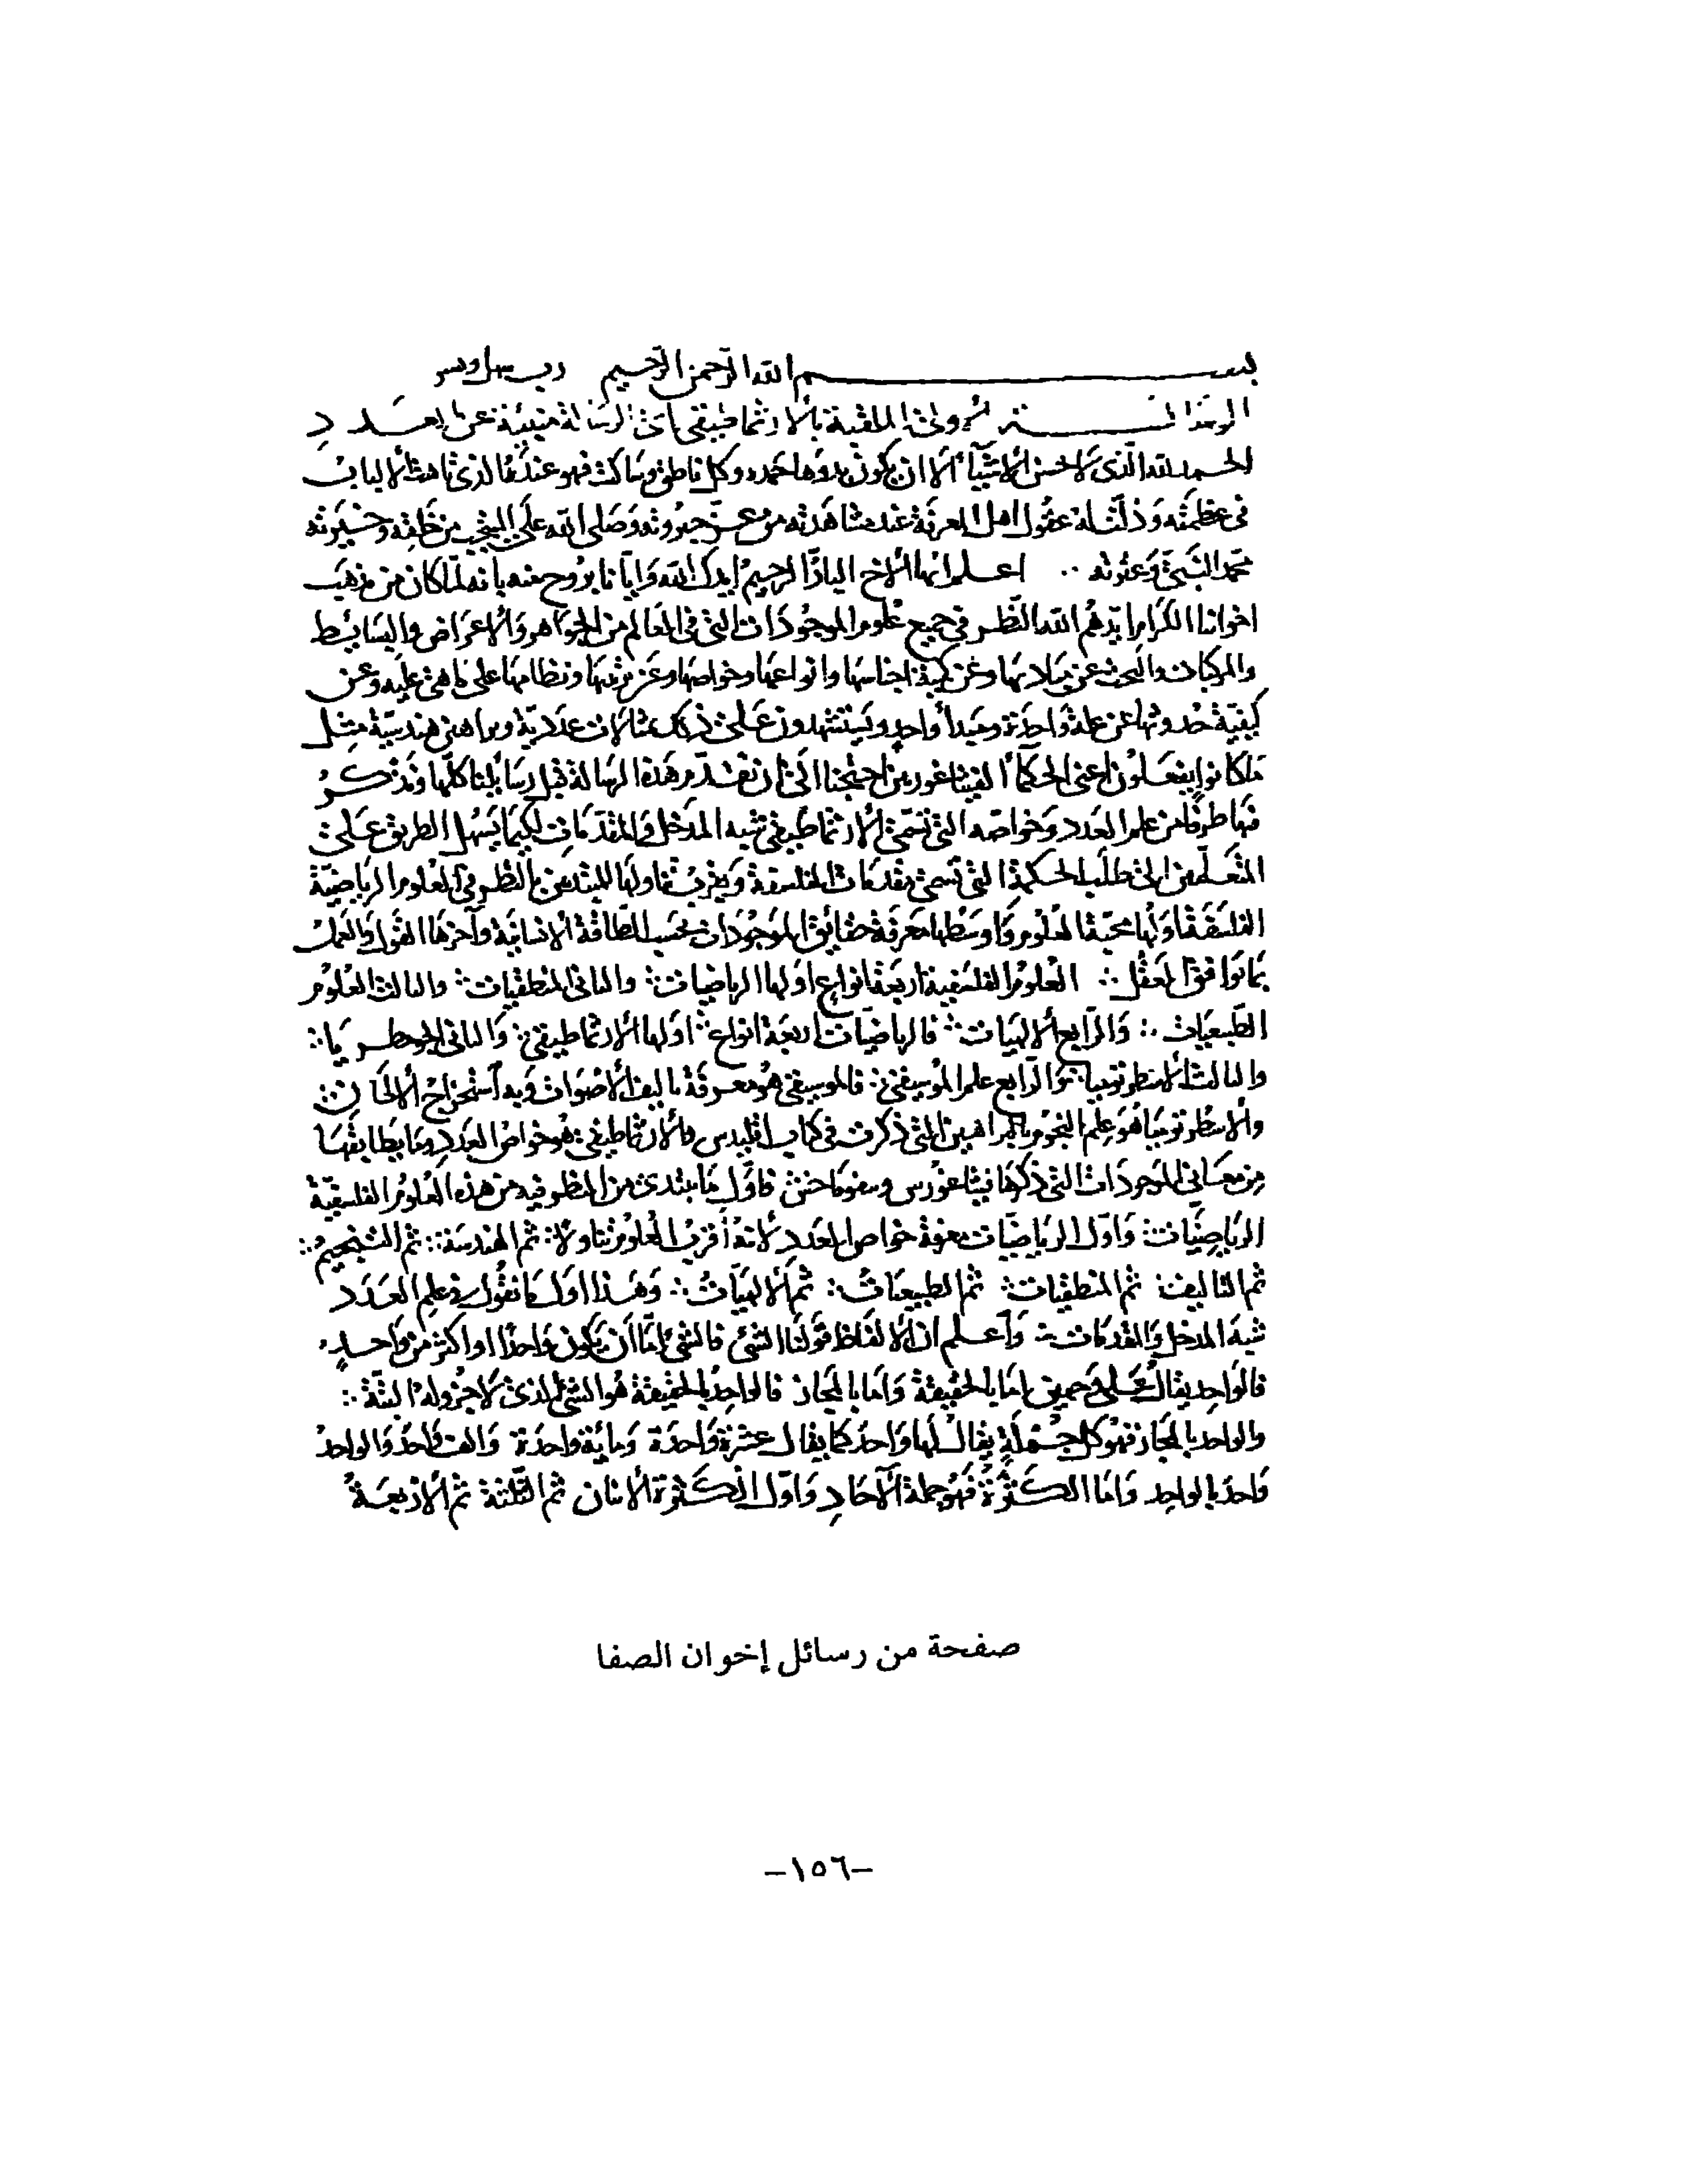 بسم الله الرحمن الرحيم رب سهل ويسر
الملقبة بالارثماطيقي
الحمد لله الذي لا احسن الاشياء الا ان يكون بدوها حمده وكل ناطق وساكت فهو عند الذي تاهت الالباب
في عظمته وذلت له عقول اهل المعرفة عند مشاهدته من عز جبروته وصلى الله على المنتجب من خلقه وخيرته
محمد النبي وعترته ∴ اعلم ايها الاخ البار الرحيم ايدك الله وايانا بروح منه بانه لما كان من مذهب
اخواننا الكرام ايدهم الله النظر في جميع علوم الموجودات التي في العالم من الجواهر والاعراض والبسائط
والمركبات والبحث عن مباديها وعن كمية اجناسها وانواعها وخواصها وعن ترتيبها ونظامها على ما هي عليه وعن
كيفية حدوثها عن علة واحدة ومبدأ واحد ويستشهدون على ذلك مثالات عددية وبراهين هندسية مثل
ما كانوا يفعلون اعني الحكماء الفيثاغوريين احتجنا الى ان نقدم هذه الرسالة قبل رسائلنا كلها ونذكر
فيها طرفا من علم العدد وخواصه التي تسمى الارثماطيقي شبه المدخل والمقدمات لكيما يسهل الطريق على
المتعلمين الى طلب الحكمة التي تسمى مقدمات الفلسفة ويقرب تناولها للمبتدئين بالنظر في العلوم الرياضية
الفلسفة اولها محبة العلوم واوسطها معرفة حقائق الموجودات بحسب الطاقة الانسانية وآخرها القول والعمل
بما توافق العقل ∴ العلوم الفلسفية اربعة انواع اولها الرياضيات ∴ والثاني المنطقيات ∴ والثالث العلوم
الطبيعيات ∴ والرابع الالهيات ∴ فالرياضيات اربعة انواع ∴ اولها الارثماطيقي ∴ والثاني الجومطريا ∴
والثالث الاسطرنوميا ∴ والرابع علم الموسيقى ∴ فالموسيقى هو معرفة تاليف الاصوات وبه استخراج الالحان ∴
والاسطرنوميا هو علم النجوم بالبراهين التي ذكرت في كتاب اقليدس والارثماطيقي هو خواص العدد وما يطابقها
من معاني الموجودات التي ذكرها فيثاغورس ونيقوماخس فاول ما يبتدئ من النظر فيه من هذه العلوم الفلسفية
الرياضيات ∴ واول الرياضيات معرفة خواص العدد لانه اقرب العلوم تناولا ∴ ثم الهندسة ∴ ثم التنجيم ∴
ثم التاليف ∴ ثم المنطقيات ∴ ثم الطبيعيات ∴ ثم الالهيات ∴ وهذا اول ما نقول في علم العدد
شبه المدخل والمقدمات ∴ واعلم ان الالفاظ قولنا الشئ فالشئ اما ان يكون واحدا او اكثر من واحد
فالواحد يقال على وجهين اما بالحقيقة واما بالمجاز فالواحد بالحقيقة هو الشئ الذي لا جزو له البتة ∴
والواحد بالمجاز فهو كل جملة يقال لها واحد كما يقال عشرة واحدة ومائة واحدة والف واحد والواحد
واحد بالواحد واما الكثرة فهو جملة الآحاد واول الكثرة الاثنان ثم الثلثة ثم الاربعة
صفحة من رسائل إخوان الصفا
-١٥٦-